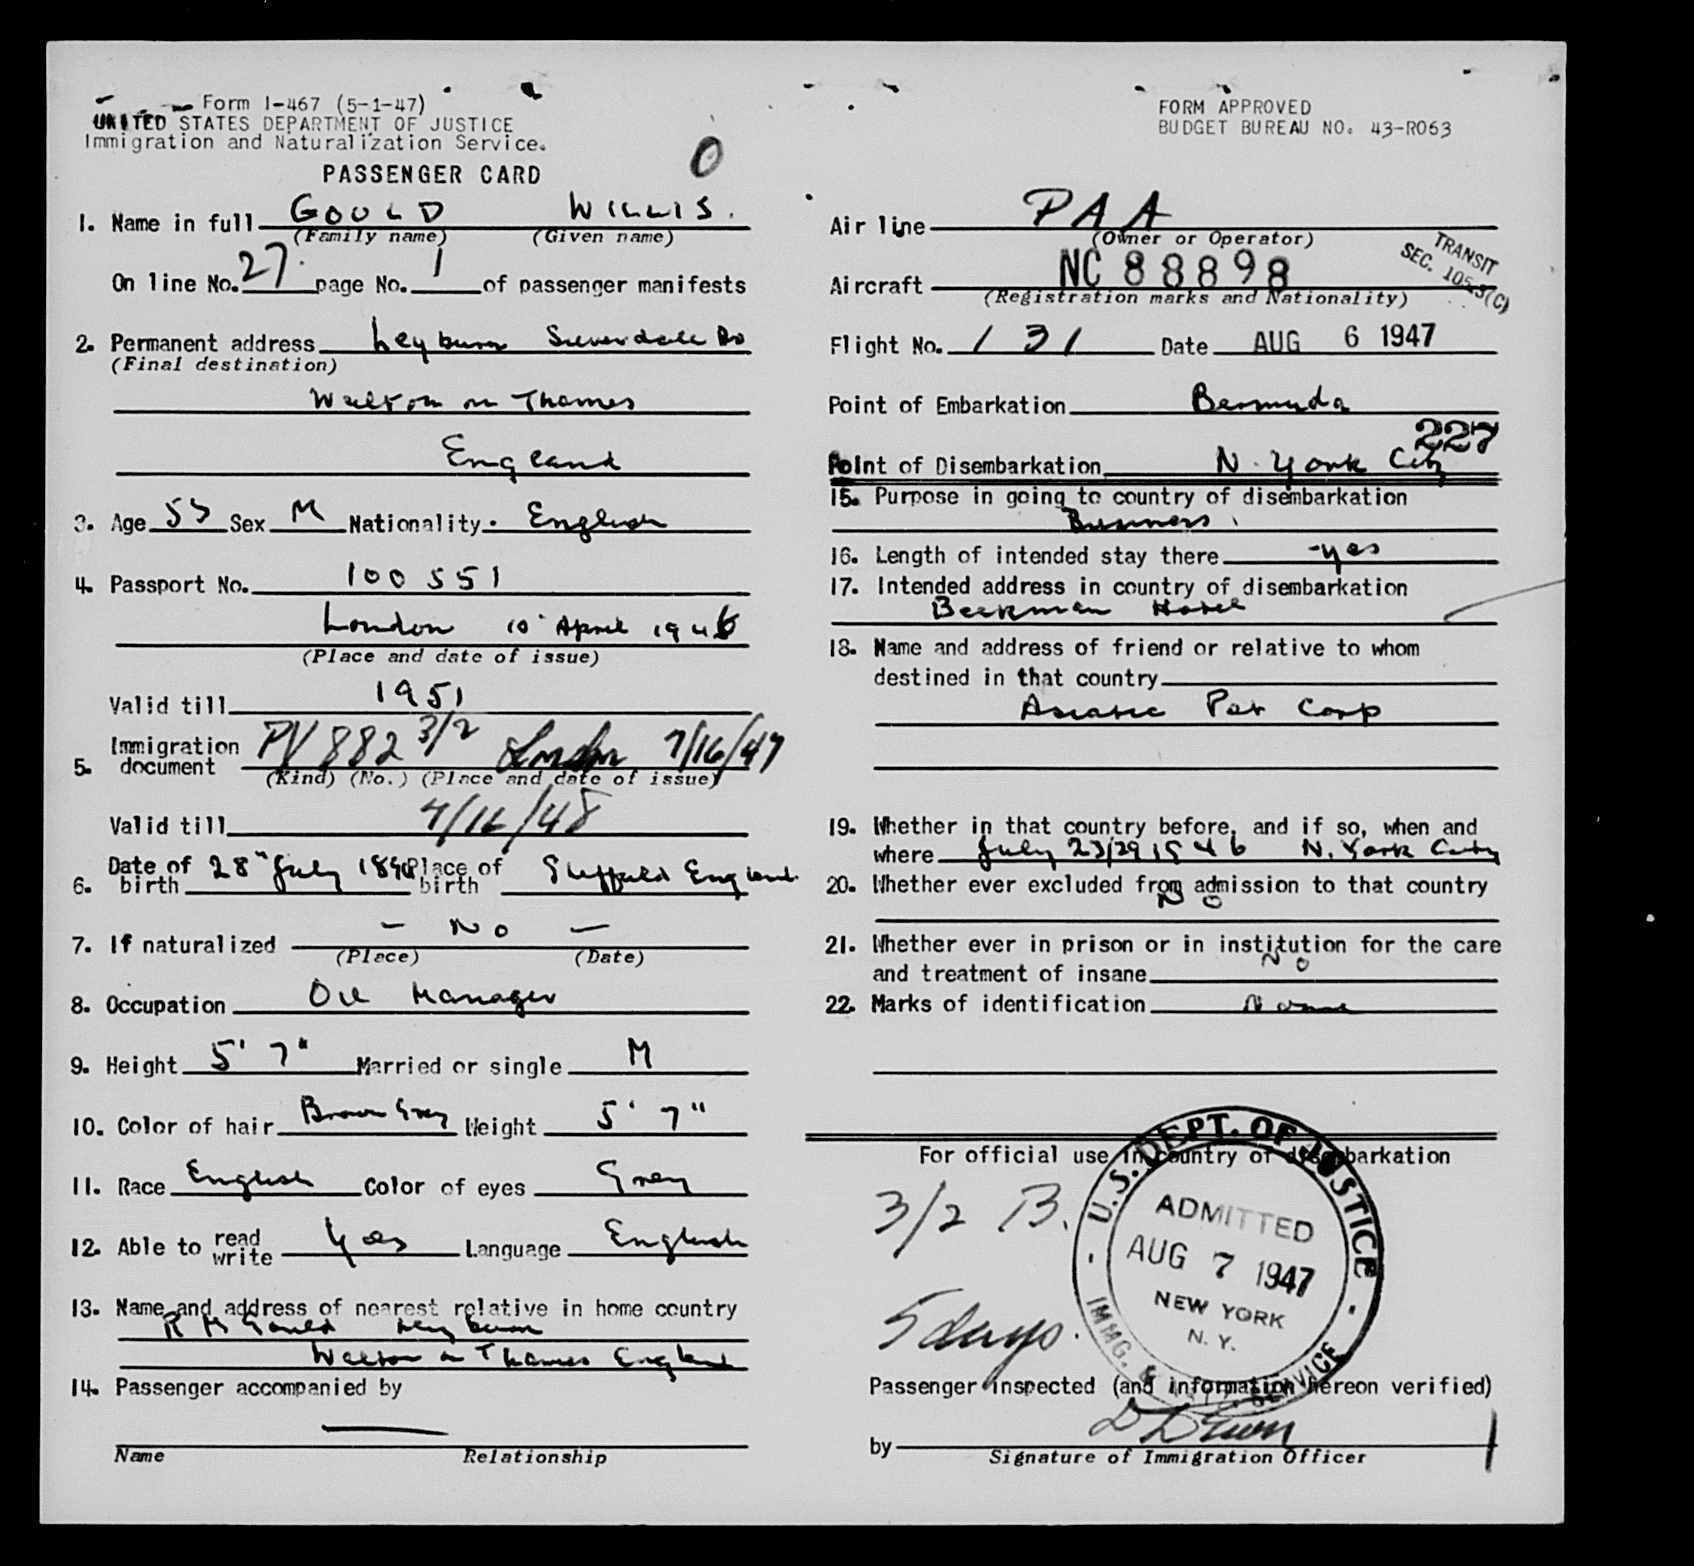 Form I-467 (5-1-47)
UNITED STATES DEPARTMENT OF JUSTICE
Immigration and Naturalization Service.
PASSENGER CARD
0
1. Name in full GOULD WILLIS.
(Family name) (Given name)
On line No. 27. page No. 1 of passenger manifests
2. Permanent address Leyburn Silverdale
(Final destination)
Walton on Thames
England
3. Age Sex M Nationality. English
4. Passport No. 100551
London 10 April 1946
(Place and date of issue)
Valid till 1951
5. Immigration document PV 882 3/2 London 7/16/47
(Kind) (No.) (Place and date of issue)
Valid till 7/16/48
6. Date of birth 28" July Place of birth Sheffield England
7. If naturalized — No —
(Place) (Date)
8. Occupation Oil Manager
9. Height 5' 7" Married or single M
10. Color of hair Brown Grey Weight 5' 7"
11. Race English Color of eyes Grey
12. Able to read write Yes Language English
13. Name and address of nearest relative in home country
Gould Leyburn
Walton on Thames England
14. Passenger accompanied by
Name Relationship
FORM APPROVED
BUDGET BUREAU NO. 43-R063
Air line PAA
(Owner or Operator)
TRANSIT
SEC. 105.3(C)
Aircraft NC 88898
(Registration marks and Nationality)
Flight No. 131 Date AUG 6 1947
Point of Embarkation Bermuda
227
Point of Disembarkation N. York City
15. Purpose in going to country of disembarkation
Business
16. Length of intended stay there yes
17. Intended address in country of disembarkation
Beekman Hotel
18. Name and address of friend or relative to whom
destined in that country
Asiatic Pet Corp
19. Whether in that country before, and if so, when and
where July 23/29 1946 N. York City
20. Whether ever excluded from admission to that country
No
21. Whether ever in prison or in institution for the care
and treatment of insane No
22. Marks of identification None
For official use in country of disembarkation
3/2 B.
5 days.
U.S. DEPT. OF JUSTICE
ADMITTED
AUG 7 1947
NEW YORK
N. Y.
IMMG. & SERVICE
Passenger inspected (and information hereon verified)
by
Signature of Immigration Officer